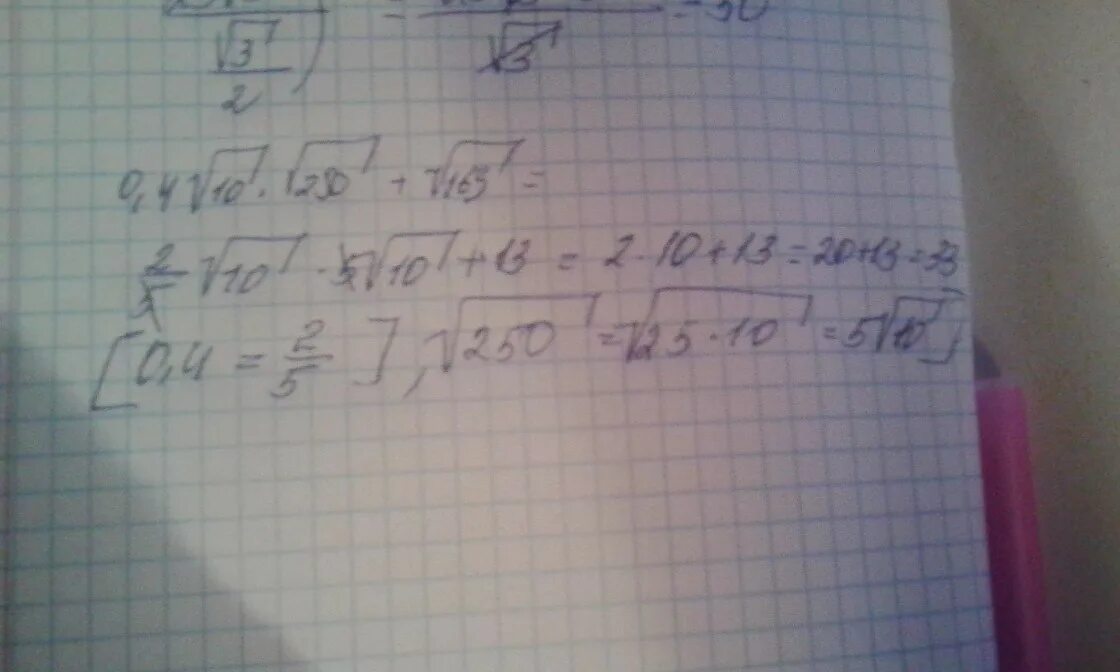 √3
2
√3
= 50
0,4√10 · √250 + √169 =
2/5 √10 · 5√10 + 13 = 2·10+13 = 20+13 = 33
[0,4 = 2/5], √250 = √25·10 = 5√10]